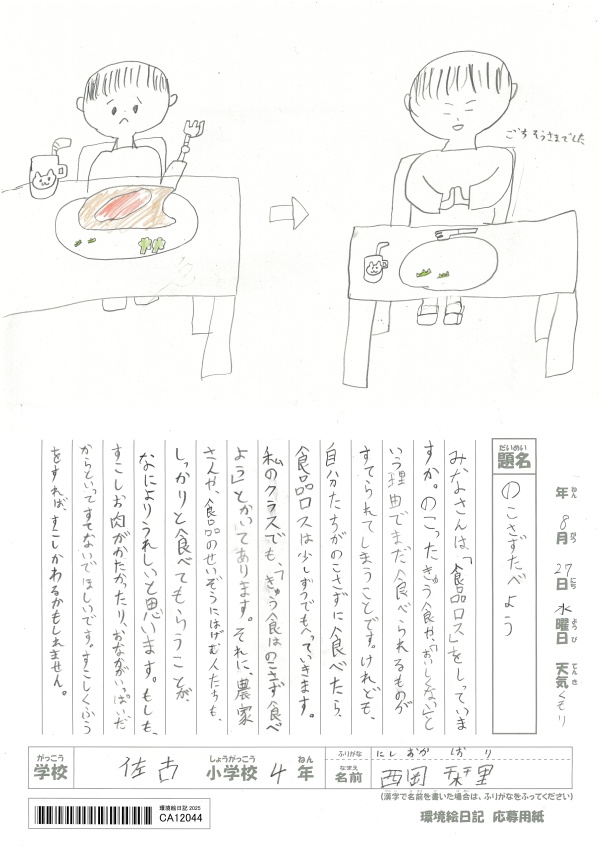 ごちそうさまでした
年 8月 27日 水曜日 天気 くもり
ねん がつ にち ようび てんき
だいめい
題名
のこさずたべよう
みなさんは、「食品ロス」をしっていま
すか。のこったきゅう食や、「おいしくない」と
いう理由でまだ食べられるものが
すてられてしまうことです。けれども、
自分たちがのこさずに食べたら、
食品ロスは少しずつでもへっていきます。
私のクラスでも、「きゅう食はのこさず食べ
よう」とかいてあります。それに、農家
さんや、食品のせいぞうにはげむ人たちも、
しっかりと食べてもらうことが、
なによりうれしいと思います。もしも、
すこしお肉がかたかったり、おなかがいっぱいだ
からといって、すてないでほしいです。すこしくふう
をすれば、すこしかわるかもしれません。
がっこう
学校
佐古
しょうがっこう
小学校
4
ねん
年
ふりがな
にしおか しおり
なまえ
名前
西岡 栞里
(漢字で名前を書いた場合は、ふりがなをふってください)
環境絵日記 2025
CA12044
環境絵日記 応募用紙